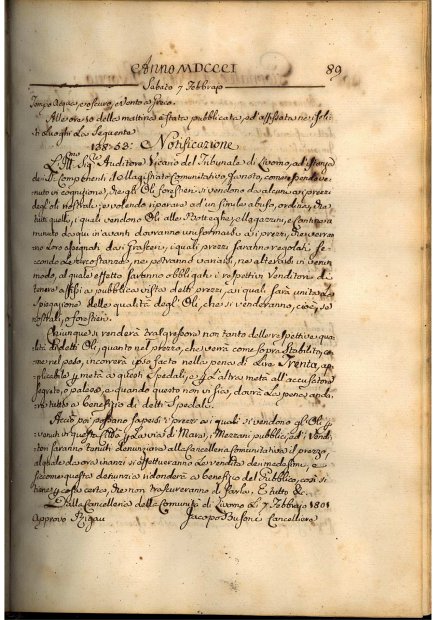 Anno MDCCCI 89
Sabato 7 Febbrajo
Tempo Acqua, e oscuro, e vento a greco.
Alle ore 10 della mattina è stata pubblicata, ed affissata nei soli-
ti Luoghi La Seguente
Notificazione
L'Ill.mo Sig.re Auditore Vicario del Tribunale di Livorno, ed
Componenti il Magistrato Comunitativo
nuto in cognizione, che gli Oli forestieri si vendono da alcuni ai prezzi
degli oli nostrali, e volendo riparare ad un simile abuso, ordina, che
tutti quelli, i quali vendono Oli alle Botteghe, e Magazzini, e Cantine a
minuto da qui in avanti dovranno uniformarsi ai prezzi, che verran-
no Loro assegnati da i Grascieri, i quali prezzi saranno regolati se-
condo Le circostanze, nè potranno variarsi, nè alterarsi in verun
modo, al quale effetto saranno obbligati i respettivi Venditori di
tenere affissi a pubblica vista detti prezzi, ai quali sarà unita La
Spiegazione delle qualità degl'Oli, che si venderanno, cioè, se
nostrali, o forestieri.
Chiunque si renderà trasgressore non tanto delle respettive qua-
lità di detti Oli, quanto nel prezzo, che verrà come sopra stabilito, co-
me nel peso, incorrerà ipso facto nella pena di Lire Trenta, ap-
plicabile p metà a questi Spedali, e p L'altra metà all'accusatore
segreto, o palese, e quando questo non vi sia, dovrà La pena anda-
re tutta a benefizio di detti Spedali.
Acciò poi possano sapersi i prezzi ai quali si vendono gli Oli
venuti in questa Città p La via di Mare, i Mezzani pubblici, ed i Vendi-
tori saranno tenuti denunziare alla Cancelleria Comunitativa il prezzo,
al quale da ora innanzi si effettueranno Le vendite dei medesimi, e
siccome questa denunzia ridonderà a benefizio del Pubblico, così si
tiene p cosa certa, che non trascureranno di farla. E tutto &
Dalla Cancelleria della Comunità di Livorno Li 7 Febbrajo 1801
Approvo Rigau Jacopo Cancelliere